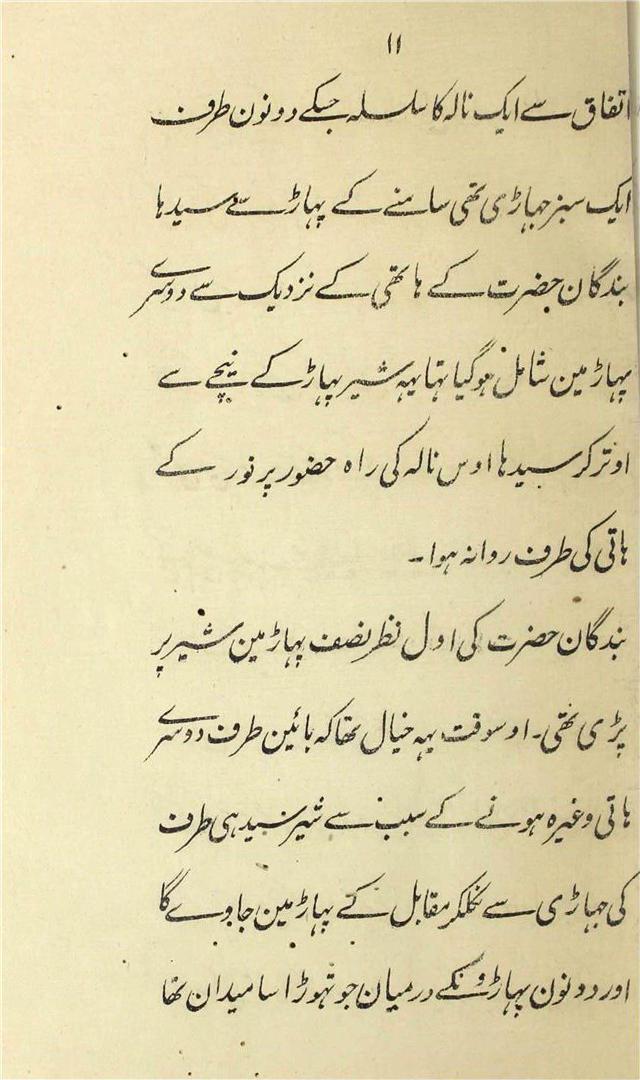 ۱۱
اتفاق سے ایک نالہ کا سلسلہ جسکے دونون طرف
ایک سبز جہاڑی تھی سامنے کے پہاڑ سے سیدہا
بندگان حضرت کے ہاتھی کے نزدیک سے دوسرے
پہاڑ مین شامل ہوگیا تہا یہہ شیر پہاڑ کے نیچے سے
اوتر کر سیدہا اوس نالہ کی راہ حضور پر نور کے
ہاتی کی طرف روانہ ہوا۔
بندگان حضرت کی اول نظر نصف پہاڑ مین شیر پر
پڑی تھی۔ اوسوقت یہہ خیال تھا کہ بائین طرف دوسرے
ہاتی وغیرہ ہونے کے سبب سے شیر سیدہی طرف
کی جہاڑی سے نکلکر مقابل کے پہاڑ مین جاوے گا
اور دونون پہاڑونکے درمیان جو تہوڑا سا میدان تھا